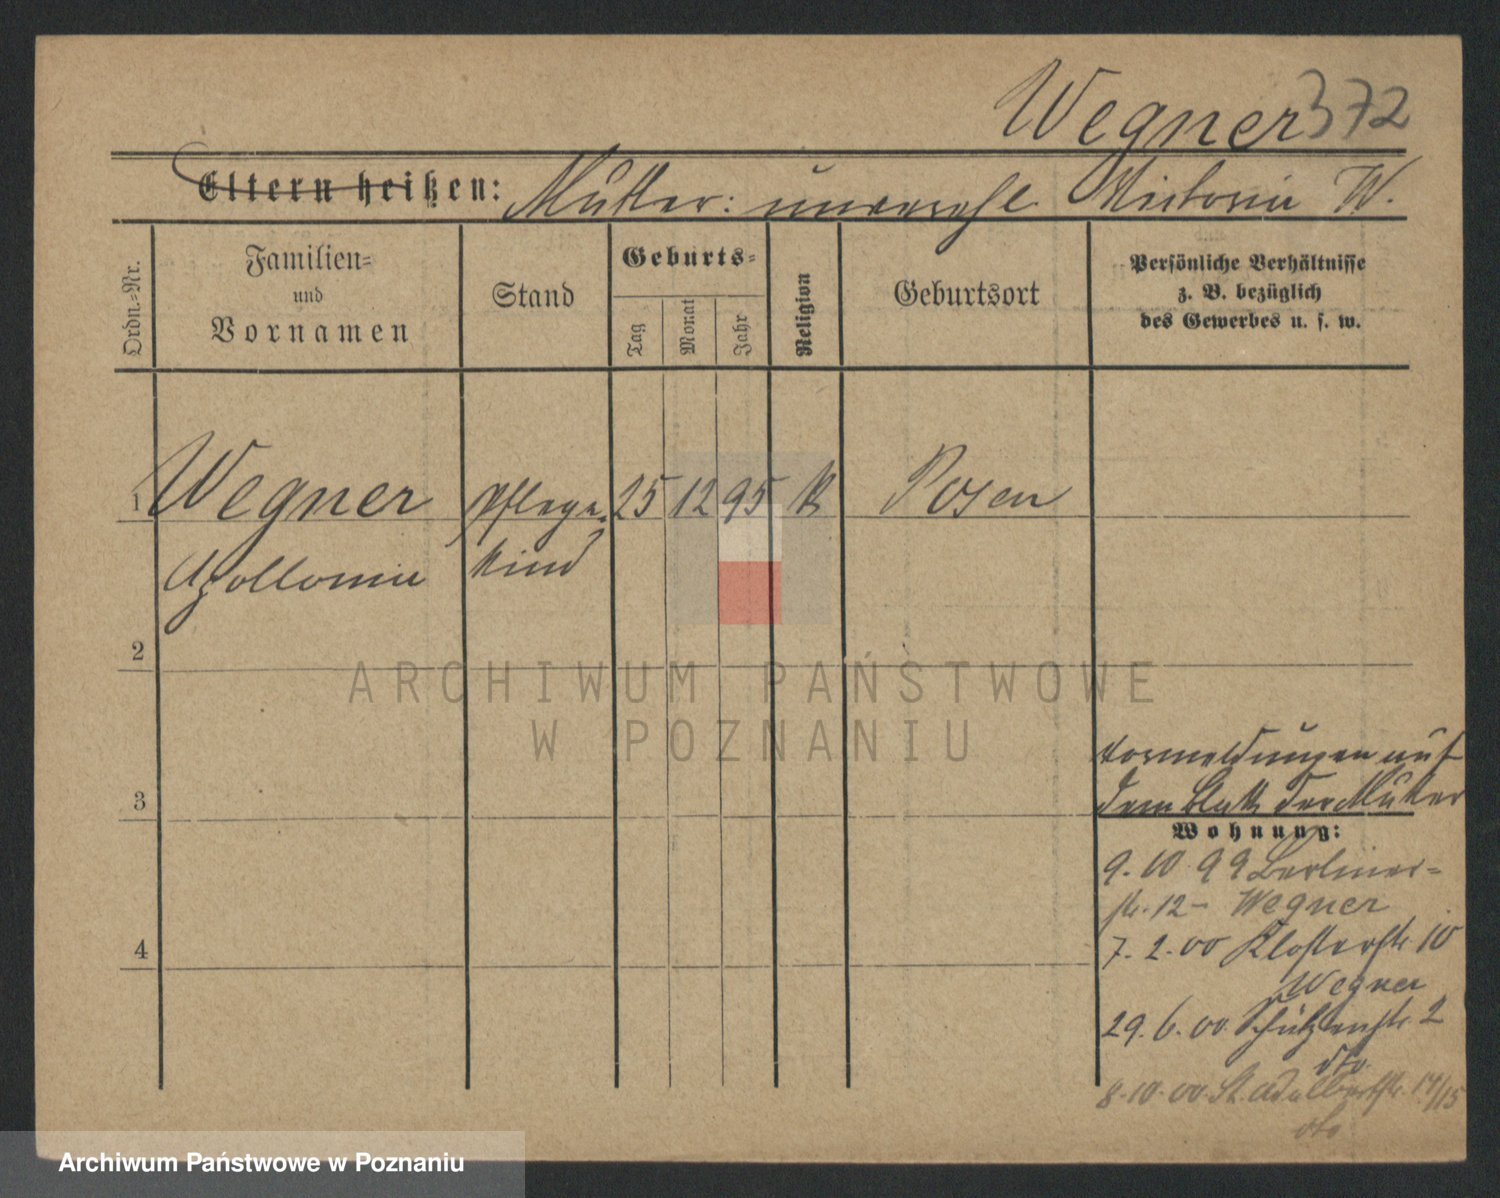 Wegner 372
Eltern heißen: Mutter: unverehl. Victoria W.
Ordn.-Nr.
Familien-
und
Vornamen
Stand
Geburts-
Tag
Monat
Jahr
Religion
Geburtsort
Persönliche Verhältnisse
z. B. bezüglich
des Gewerbes u. s. w.
1 Wegner Pflege- 25 12 95 K Posen
Apollonia kind
2
ARCHIWUM PAŃSTWOWE
W POZNANIU
3
4
Vormeldungen auf
dem Blatt der Mutter
Wohnung:
9.10.99 Berliner-
str. 12 - Wegner
7.2.00 Klosterstr. 10
Wegner
29.6.00 Schützenstr. 2
dto
8.10.00 St. Adalbertstr. 14/15
dto
Archiwum Państwowe w Poznaniu